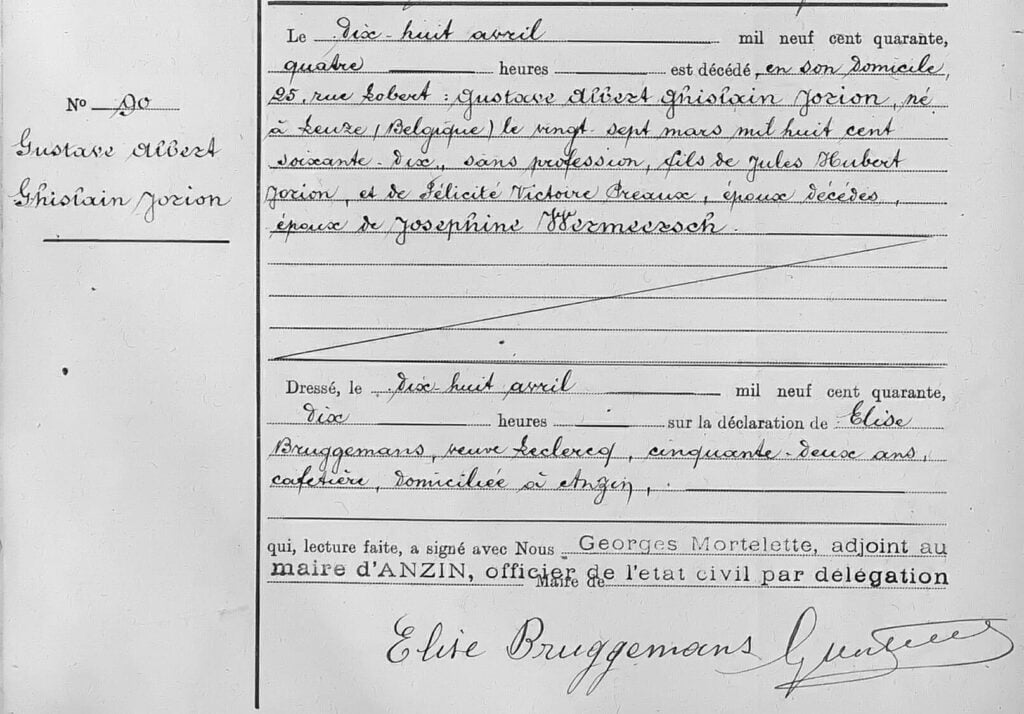 Le dix-huit avril mil neuf cent quarante,
quatre heures est décédé, en son domicile,
25, rue Lobert : Gustave Albert Ghislain Jorion, né
à Leuze (Belgique) le vingt-sept mars mil huit cent
soixante-dix, sans profession, fils de Jules Hubert
Jorion, et de Félicité Victoire Preaux, époux décédés,
époux de Josephine Wermeersch.
No 90
Gustave Albert
Ghislain Jorion
Dressé, le dix-huit avril mil neuf cent quarante,
dix heures sur la déclaration de Elise
Bruggemans, veuve Leclercq, cinquante-deux ans,
cafetière, domiciliée à Anzin,
qui, lecture faite, a signé avec Nous Georges Mortelette, adjoint au
maire d'ANZIN, officier de l'etat civil par délégation
Maire de
Elise Bruggemans